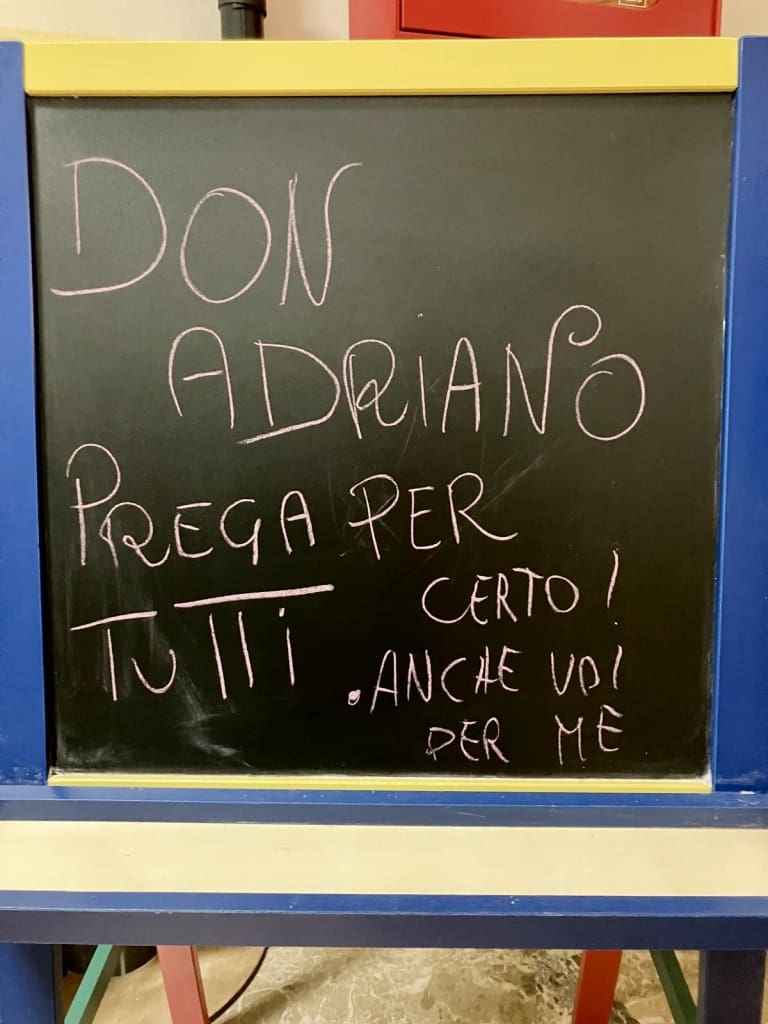 DON
ADRIANO
PREGA PER
TUTTi
CERTO!
.ANCHE VOI
PER ME